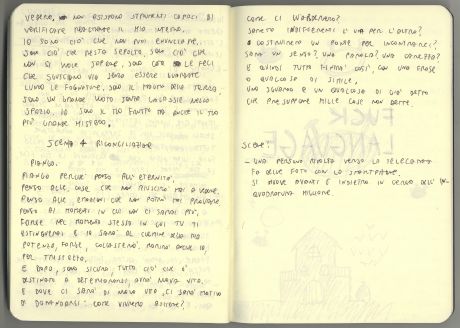 VEDERE, NON ESISTONO STRUMENTI CAPACI DI
VERIFICARE REALMENTE IL MIO INTERNO.
IO SONO CIÒ CHE NON PUOI
SONO CIÒ CHE RESTA SEPOLTO, SONO CIÒ CHE
NON SI VUOLE SAPERE, SONO LE FECI
CHE SCIVOLANO VIA SENZA ESSERE
LUNGO LE FOGNATURE, SONO IL DELLA TERRA,
SONO UN GRANDE VUOTO NELLO
SPAZIO, IO SONO IL TUO FRUTTO MA ANCHE IL TUO
PIÙ GRANDE MISTERO.
SCENA 4 RICONCILIAZIONE
PIANGO.
PIANGO PERCHÉ PENSO ALL'ETERNITÀ,
PENSO ALLE COSE CHE NON RIUSCIRÒ MAI A VEDERE,
PENSO ALLE EMOZIONI CHE NON POTRÒ MAI PROVARE,
PENSO AI MOMENTI IN CUI NON CI SARAI PIÙ,
FORSE NEL MOMENTO STESSO IN CUI TU TI
ESTINGUERAI E IO SARÒ AL CULMINE DELLA MIA
POTENZA, FORSE, COLLASSERÒ, MORIRÒ ANCHE IO,
PER TRISTEZZA.
E DOPO, SONO SICURO, TUTTO CIÒ CHE È
DESTINATO A DETERMINARSI, AVRÀ NUOVA VITA.
E DOVE CI SARÀ DI NUOVO VITA, CI SARÀ MOTIVO
DI DOMANDARSI: COME VIVREMO ASSIEME?
COME CI VORREMO?
SAREMO INDIFFERENTI L'UN PER L'ALTRO?
O COSTRUIREMO UN PONTE PER INCONTRARCI?
SARÀ UN SENSO? UNA PAROLA? UNA CAREZZA?
E QUINDI TUTTO FINIRÀ COSÌ, CON UNA FRASE
O QUALCOSA DI SIMILE,
UNO SGUARDO E UN QUALCOSA DI GIÀ DETTO
CHE PRESUPPONE MILLE COSE NON DETTE.
FUCK
LANGUAGE
SCENE:
- UNA PERSONA RIVOLTA VERSO LA TELECAMERA
FA DELLE FOTO CON LO SMARTPHONE,
SI MUOVE AVANTI E INDIETRO IN CERCA DELL'IN-
QUADRATURA MIGLIORE.